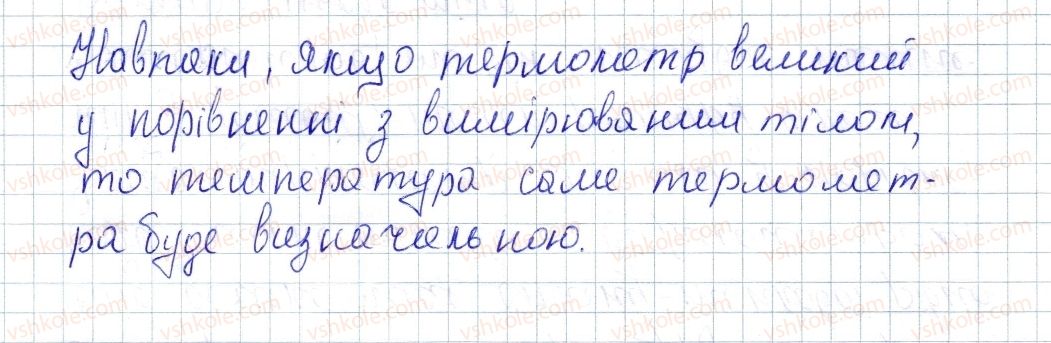 Навпаки, якщо термометр великий
у порівненні з вимірюваним тілом,
то температура саме термомет-
ра буде визначальною.
vshkole.com